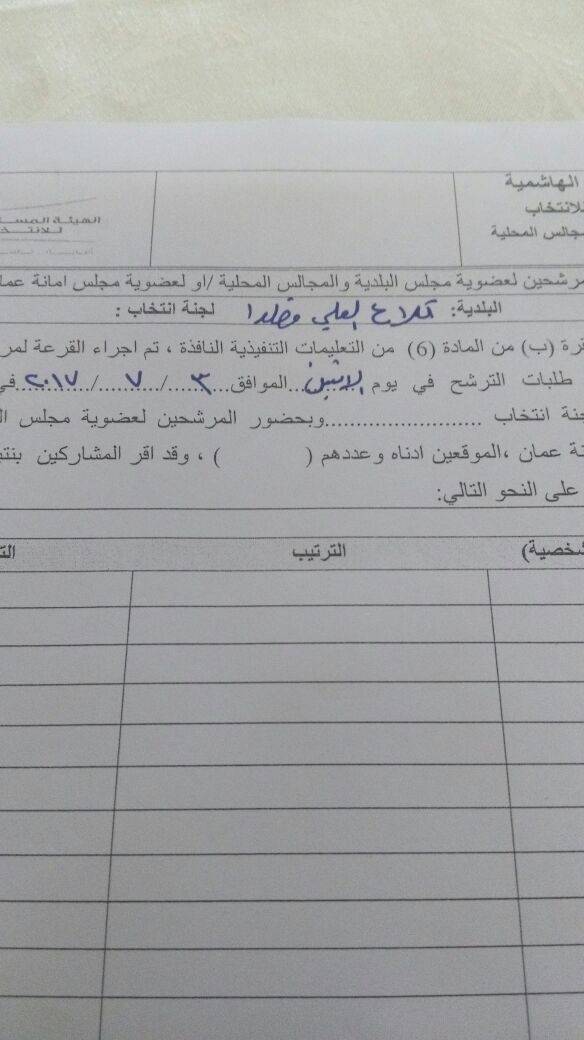 الهاشمية
للانتخاب
جالس المحلية
الهيئة المسـ
للانتخـ
مرشحين لعضوية مجلس البلدية والمجالس المحلية /او لعضوية مجلس امانة عما
البلدية: تلاع العلي وخلدا لجنة انتخاب :
قرة (ب) من المادة (6) من التعليمات التنفيذية النافذة ، تم اجراء القرعة لمر
طلبات الترشح في يوم الاثنين...الموافق...٣.../...٧.../...٢٠١٧...في
جنة انتخاب .......................وبحضور المرشحين لعضوية مجلس ال
نة عمان ،الموقعين ادناه وعددهم ( ) ، وقد اقر المشاركين بنتي
على النحو التالي:
شخصية) الترتيب الت